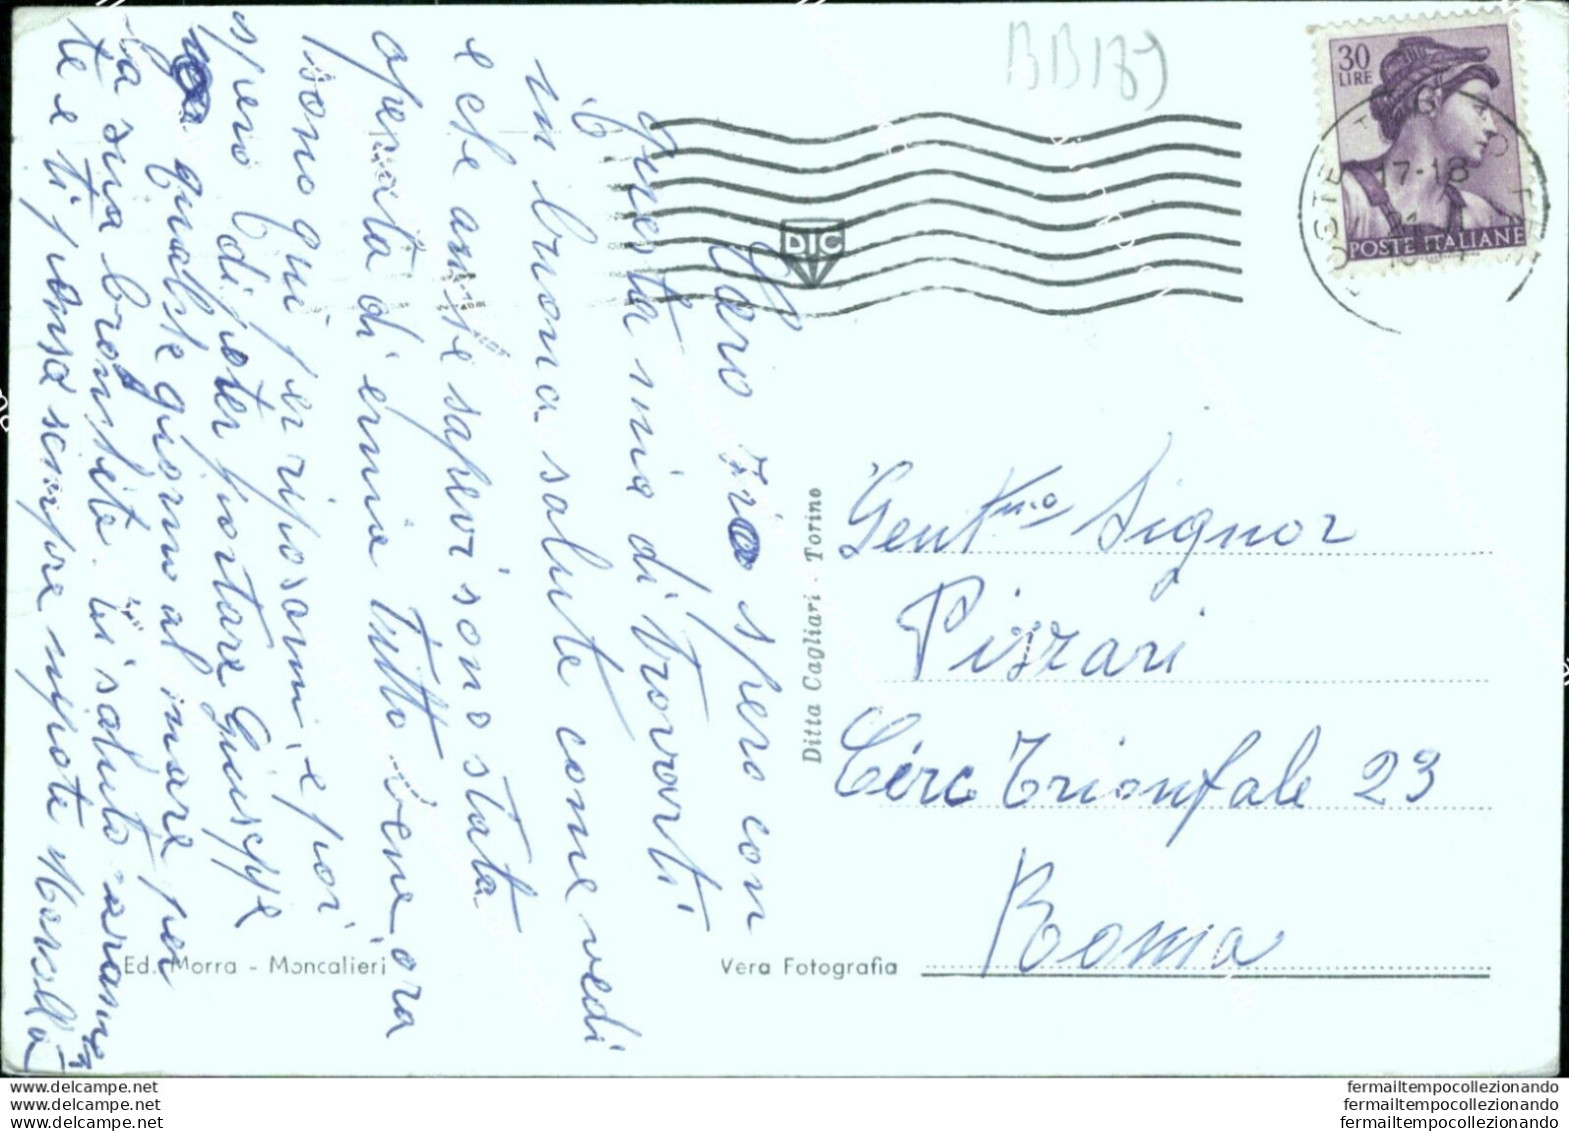 BB189
30
LIRE
POSTE ITALIANE
17-18
DIC
Caro zio spero con
questa mia di trovarti
in buona salute come vedi
e che anche sapevi sono stata
operata di ernia tutto bene ora
sono qui per riposarmi e poi
spero di poter portare Giuseppe
qualche giorno al mare per
la sua bronchite ti saluto caramen
te e ti pensa sempre nipote
Gent.mo Signor
Pizzari
Circ Trionfale 23
Roma
Ditta Cagliari - Torino
Ed. Morra - Moncalieri
Vera Fotografia
www.delcampe.net
www.delcampe.net
www.delcampe.net
fermailtempocollezionando
fermailtempocollezionando
fermailtempocollezionando